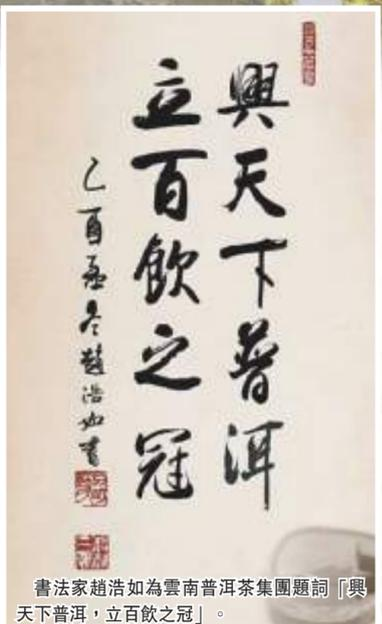 興天下普洱
立百飲之冠
乙酉孟冬趙浩如書
書法家趙浩如為雲南普洱茶集團題詞「興
天下普洱，立百飲之冠」。